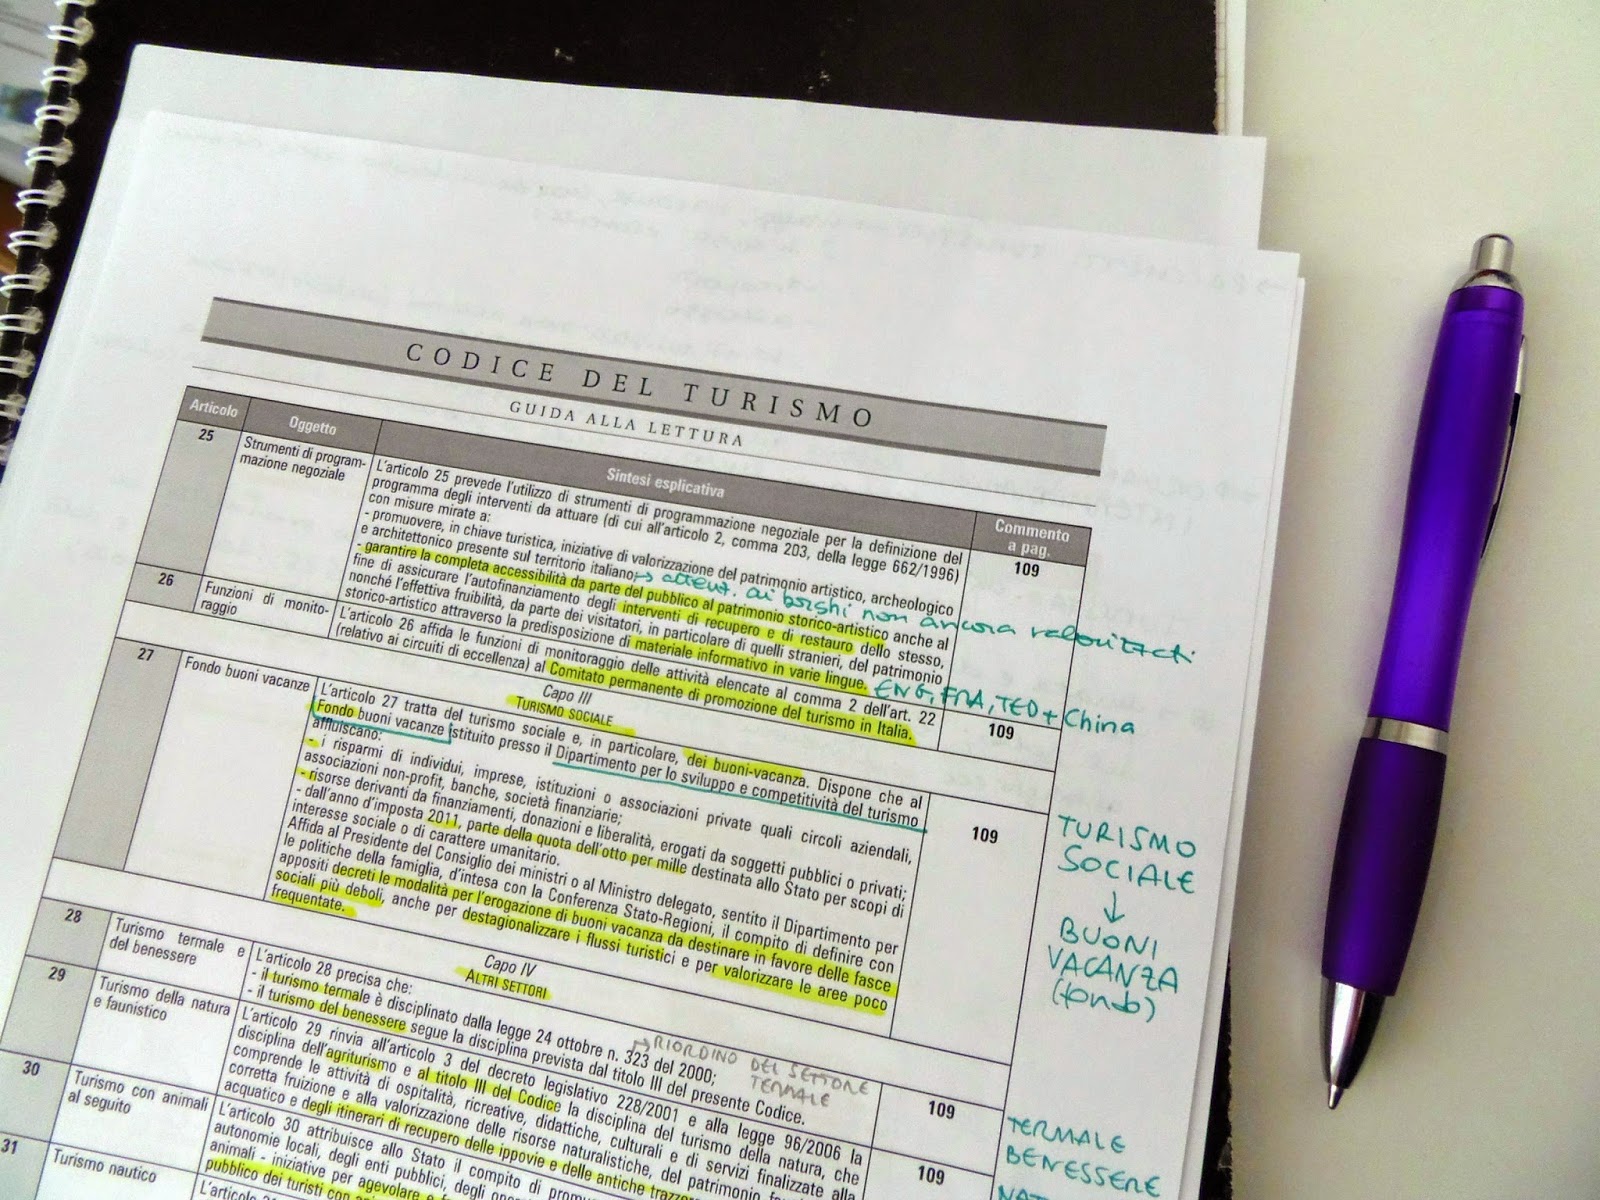 CODICE DEL TURISMO
GUIDA ALLA LETTURA
Articolo
Oggetto
Sintesi esplicativa
Commento
a pag.
25
Strumenti di program-
mazione negoziale
L'articolo 25 prevede l'utilizzo di strumenti di programmazione negoziale per la definizione del
programma degli interventi da attuare (di cui all'articolo 2, comma 203, della legge 662/1996)
con misure mirate a:
- promuovere, in chiave turistica, iniziative di valorizzazione del patrimonio artistico, archeologico
e architettonico presente sul territorio italiano; → attenz. ai borghi non ancora valorizzati
- garantire la completa accessibilità da parte del pubblico al patrimonio storico-artistico anche al
fine di assicurare l'autofinanziamento degli interventi di recupero e di restauro dello stesso,
nonché l'effettiva fruibilità, da parte dei visitatori, in particolare di quelli stranieri, del patrimonio
storico-artistico attraverso la predisposizione di materiale informativo in varie lingue. ENG, FRA, TED + China
109
26
Funzioni di monito-
raggio
L'articolo 26 affida le funzioni di monitoraggio delle attività elencate al comma 2 dell'art. 22
(relativo ai circuiti di eccellenza) al Comitato permanente di promozione del turismo in Italia.
109
Capo III
TURISMO SOCIALE
27
Fondo buoni vacanze
L'articolo 27 tratta del turismo sociale e, in particolare, dei buoni-vacanza. Dispone che al
Fondo buoni vacanze istituito presso il Dipartimento per lo sviluppo e competitività del turismo
affluiscano:
- i risparmi di individui, imprese, istituzioni o associazioni private quali circoli aziendali,
associazioni non-profit, banche, società finanziarie;
- risorse derivanti da finanziamenti, donazioni e liberalità, erogati da soggetti pubblici o privati;
- dall'anno d'imposta 2011, parte della quota dell'otto per mille destinata allo Stato per scopi di
interesse sociale o di carattere umanitario.
Affida al Presidente del Consiglio dei ministri o al Ministro delegato, sentito il Dipartimento per
le politiche della famiglia, d'intesa con la Conferenza Stato-Regioni, il compito di definire con
appositi decreti le modalità per l'erogazione di buoni vacanza da destinare in favore delle fasce
sociali più deboli, anche per destagionalizzare i flussi turistici e per valorizzare le aree poco
frequentate.
109
TURISMO
SOCIALE
↓
BUONI
VACANZA
(fondo)
Capo IV
ALTRI SETTORI
28
Turismo termale e
del benessere
L'articolo 28 precisa che:
- il turismo termale è disciplinato dalla legge 24 ottobre n. 323 del 2000;
- il turismo del benessere segue la disciplina prevista dal titolo III del presente Codice.
→ RIORDINO DEL SETTORE
TERMALE
109
TERMALE
BENESSERE
29
Turismo della natura
e faunistico
L'articolo 29 rinvia all'articolo 3 del decreto legislativo 228/2001 e alla legge 96/2006 la
disciplina dell'agriturismo e al titolo III del Codice la disciplina del turismo della natura, che
comprende le attività di ospitalità, ricreative, didattiche, culturali e di servizi finalizzate alla
corretta fruizione e alla valorizzazione delle risorse naturalistiche, del patrimonio
acquatico e degli itinerari di recupero delle ippovie e delle antiche
109
30
Turismo con animali
al seguito
L'articolo 30 attribuisce allo Stato il compito di
autonomie locali, degli enti pubblici, degli
animali - iniziative per agevolare e
pubblico dei turisti con
31
Turismo nautico
L'articolo